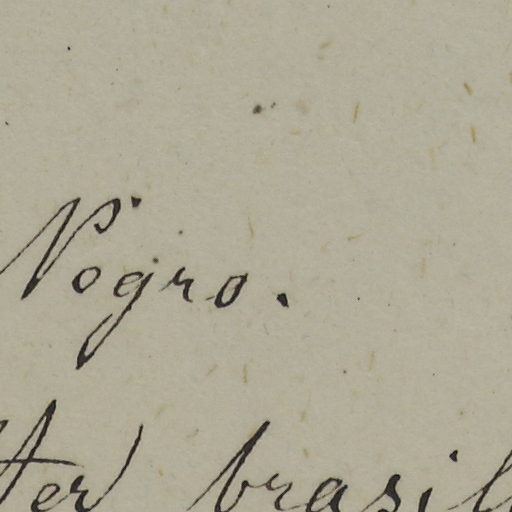 Negro.
ter brasil